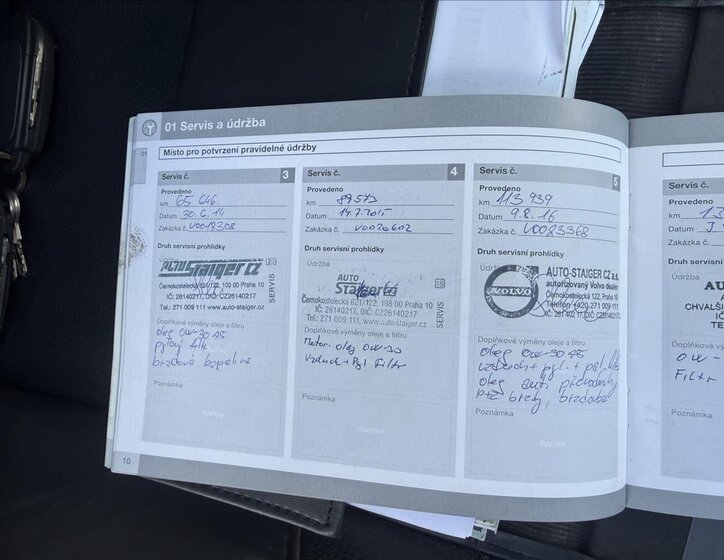 01 Servis a údržba
Místo pro potvrzení pravidelné údržby
Servis č. 3
Provedeno
km 65 646
Datum 30.6.14
Zakázka č. V0018308
Druh servisní prohlídky
Údržba
AUTO STAIGER CZ
Černokostelecká 621/122, 108 00 Praha 10
IČ: 26140217, DIČ: CZ26140217
Tel.: 271 009 111, www.auto-staiger.cz
SERVIS
Doplňkové výměny oleje a filtru
olej 0W-30 A5
pylový filtr
brzdová kapalina
Poznámka
Razítka
Servis č. 4
Provedeno
km 89573
Datum 14.7.2015
Zakázka č. V0020602
Druh servisní prohlídky
Údržba
AUTO Staiger CZ
Černokostelecká 621/122, 108 00 Praha 10
IČ: 26140217, DIČ: CZ26140217
Tel.: 271 009 111, www.auto-staiger.cz
18
SERVIS
Doplňkové výměny oleje a filtru
Motor. olej 0W-30
Vzduch + Pyl Filtr
Poznámka
Razítka
Servis č. 5
Provedeno
km 113 939
Datum 9.8.16
Zakázka č. V0023368
Druh servisní prohlídky
Údržba
VOLVO
AUTO-STAIGER CZ a.s.
autorizovaný Volvo dealer
Černokostelecká 122, Praha
Telefon (420) 271 009 111
IČ: 261 402 17 DIČ: CZ26140217
Doplňkové výměny oleje a filtru
olej 0W-30 A5
vzduch + pyl. + pal. filtr
olej aut. převodovky
brzdy, brzdová
Poznámka
Razítka
Servis č.
Provedeno
km
Datum
Zakázka č.
Druh servisní
Údržba
AU
CHVALŠI
IČ
TE
Doplňkové vým
0W-
Filtr
Poznámka
10